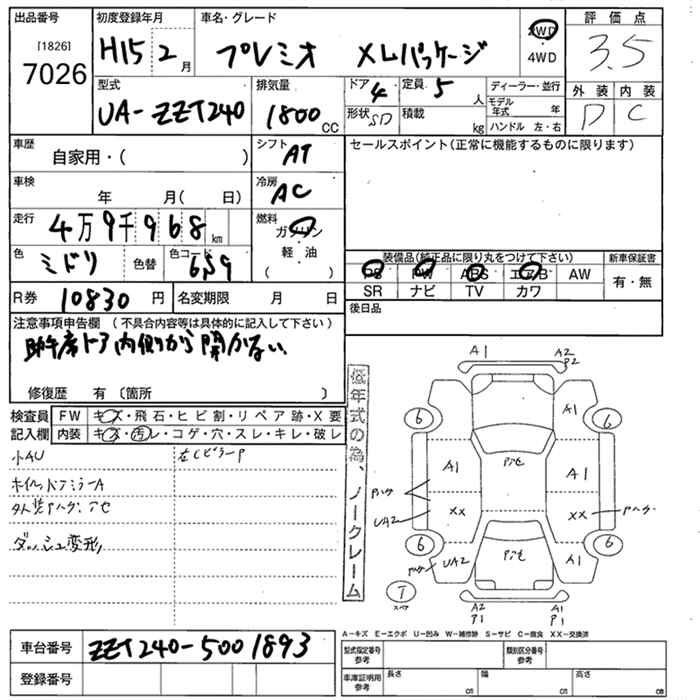 出品番号 初度登録年月 車名・グレード 評価点
[1826]
7026 H15 2月 プレミオ XLパッケージ 2WD 4WD 3.5
型式 排気量 ドア 4 定員 5人 ディーラー・並行 外装 内装
UA-ZZT240 1800 CC 形状 SD 積載 kg モデル年式 年 D C
ハンドル 左・右
車歴 自家用・( ) シフト AT セールスポイント(正常に機能するものに限ります)
車検 年 月( 日) 冷房 AC
走行 4万9千968km 燃料 ガソリン
軽油
( )
色 ミドリ 色替 色コード 6S9 装備品(純正品に限り丸をつけて下さい) 新車保証書
PS PW ABS エアB AW 有・無
R券 10830円 名変期限 月 日 SR ナビ TV カワ
注意事項申告欄 (不具合内容等は具体的に記入して下さい) 後日品
助手席ドア内側から開かない
修復歴 有(箇所 )
検査員記入欄 FW キズ・飛石・ヒビ割・リペア跡・X要
内装 キズ・汚レ・コゲ・穴・スレ・キレ・破レ
小4U 左CピラーP
ダッシュ変形
低年式の為、ノークレーム
A1 A2 P2
6 A1 6
A1 Pﾊｾ A1
Pﾊｹ XX XX Pﾊｹ
UA2
6 Pﾊｹ UA2 Pﾊｾ A1 6
T スペア A2 P1 A1 P1
A-キズ E-エクボ U-凹み W-補修跡 S-サビ C-腐食 XX-交換済
車台番号 ZZT240-5001893 型式指定番号 参考 類別区分番号 参考
登録番号 車庫証明用 参考 長さ cm 幅 cm 高さ cm